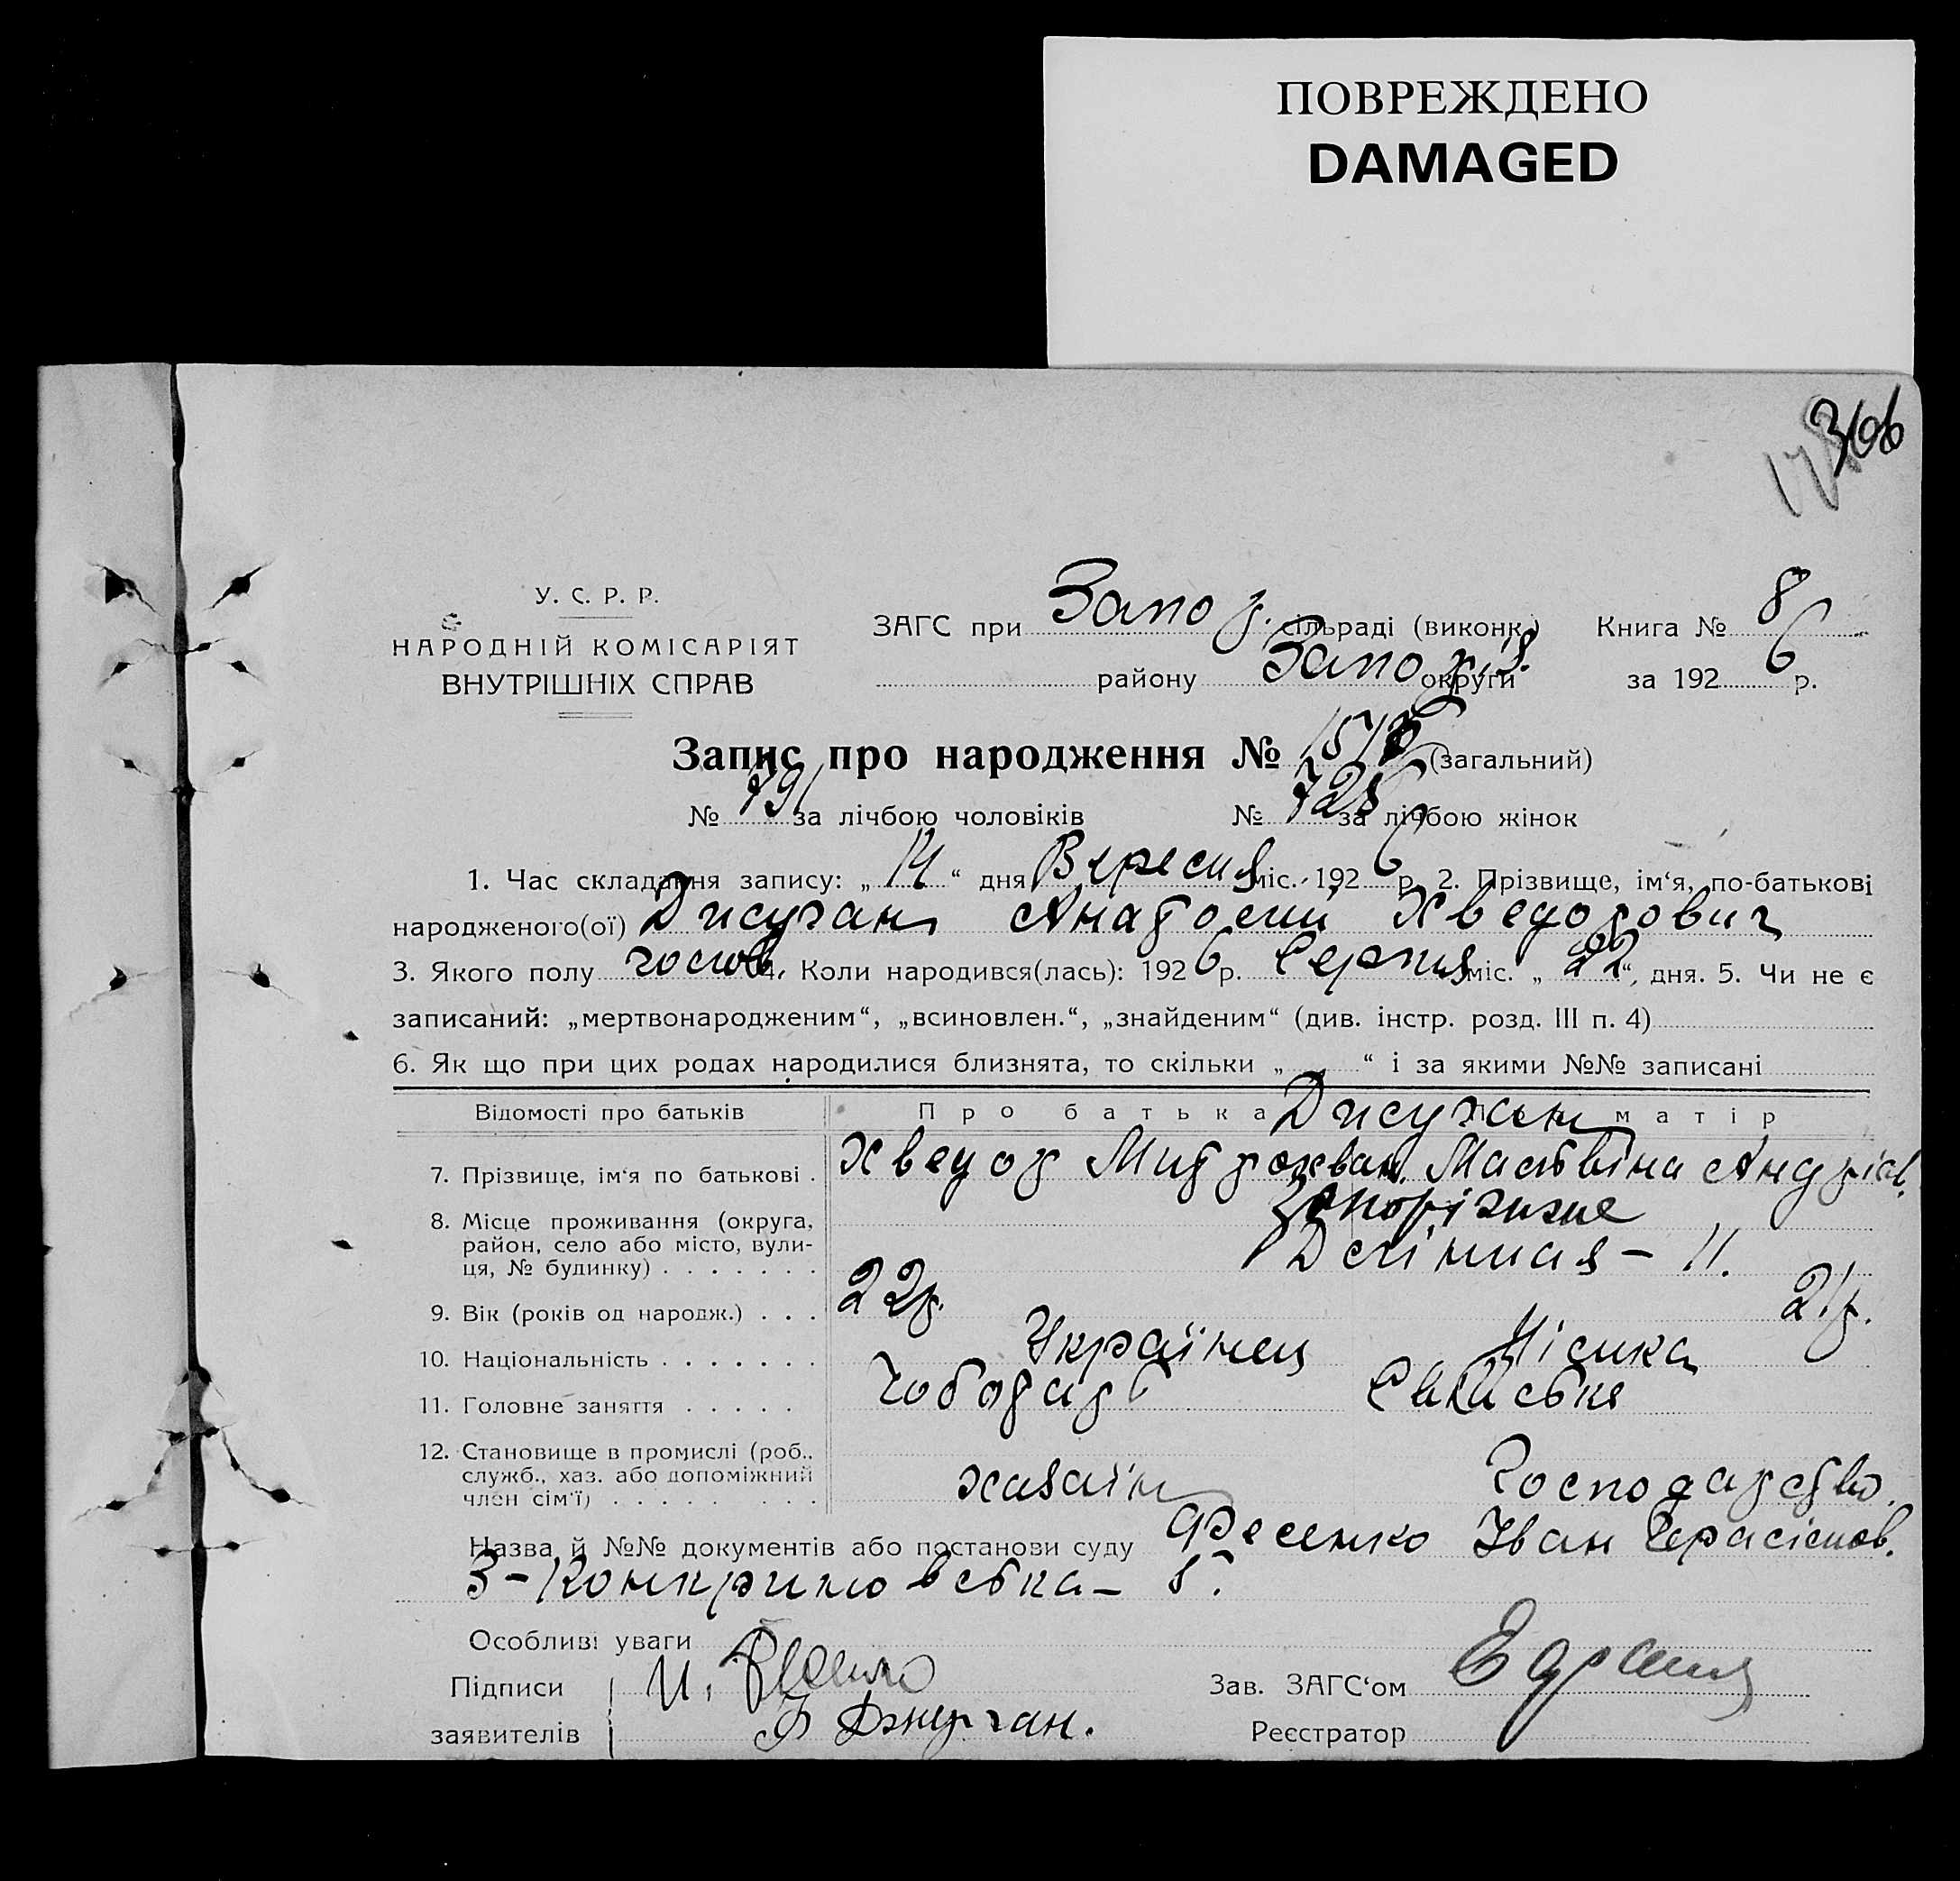 ПОВРЕЖДЕНО
DAMAGED
306
У. С. Р. Р.
НАРОДНІЙ КОМІСАРІЯТ
ВНУТРІШНІХ СПРАВ
ЗАГС при Запор. сільраді (виконк.) Книга № 8
району Запоріз. округи за 1926 р.
Запис про народження № (загальний)
№ 791 за лічбою чоловіків № за лічбою жінок
1. Час складання запису: „14“ дня Вересня міс. 1926 р. 2. Прізвище, ім‘я, по-батькові
народженого(ої) Анатолій Хведорович
3. Якого полу чолов. 4. Коли народився(лась): 1926 р. Серпня міс. „22“, дня. 5. Чи не є
записаний: „мертвонародженим“, „всиновлен.“, „знайденим“ (див. інстр. розд. III п. 4)
6. Як що при цих родах народилися близнята, то скільки „ “ і за якими №№ записані
Відомості про батьків Про батька матір
7. Прізвище, ім‘я по батькові . Хведор Митрохван. Андріев.
8. Місце проживання (округа, Запоріжжє
район, село або місто, вули- 11.
ця, № будинку) . . . . . . .
9. Вік (років од народж.) . . . 22 р. 21 р.
10. Національність . . . . . . . Українец
11. Головне заняття . . . . . Чоботарь
12. Становище в промислі (роб.,
служб., хаз. або допоміжний
член сім‘ї) . . . . . . . . . хазаїн Господарство.
Назва й №№ документів або постанови суду Фесенко Іван Герасімов.
5.
Особливі уваги
Підписи И. Зав. ЗАГС‘ом
заявителів Ф Реєстратор